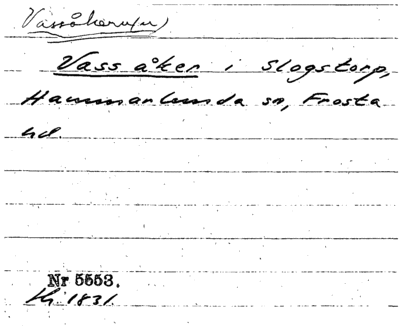 Vassåkern(n)
Vass åker i Slogstorp,
Hammarlunda sn, Frosta
hd.
Nr 5553.
Kr. 1831.